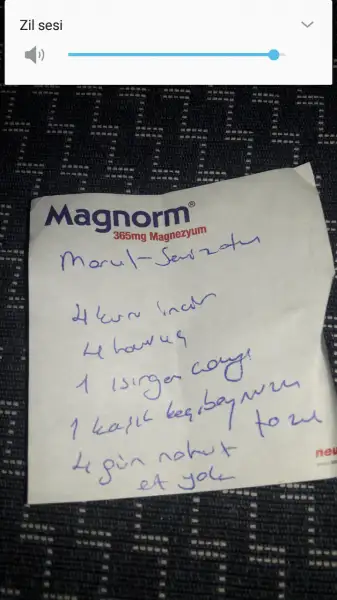 Zil sesi
Magnorm®
365mg Magnezyum
Marul-Semizotu
4 kuru incir
4 havuç
1 ısırgan çayı
1 kaşık keçiboynuzu
tozu
4 gün nohut
et yok